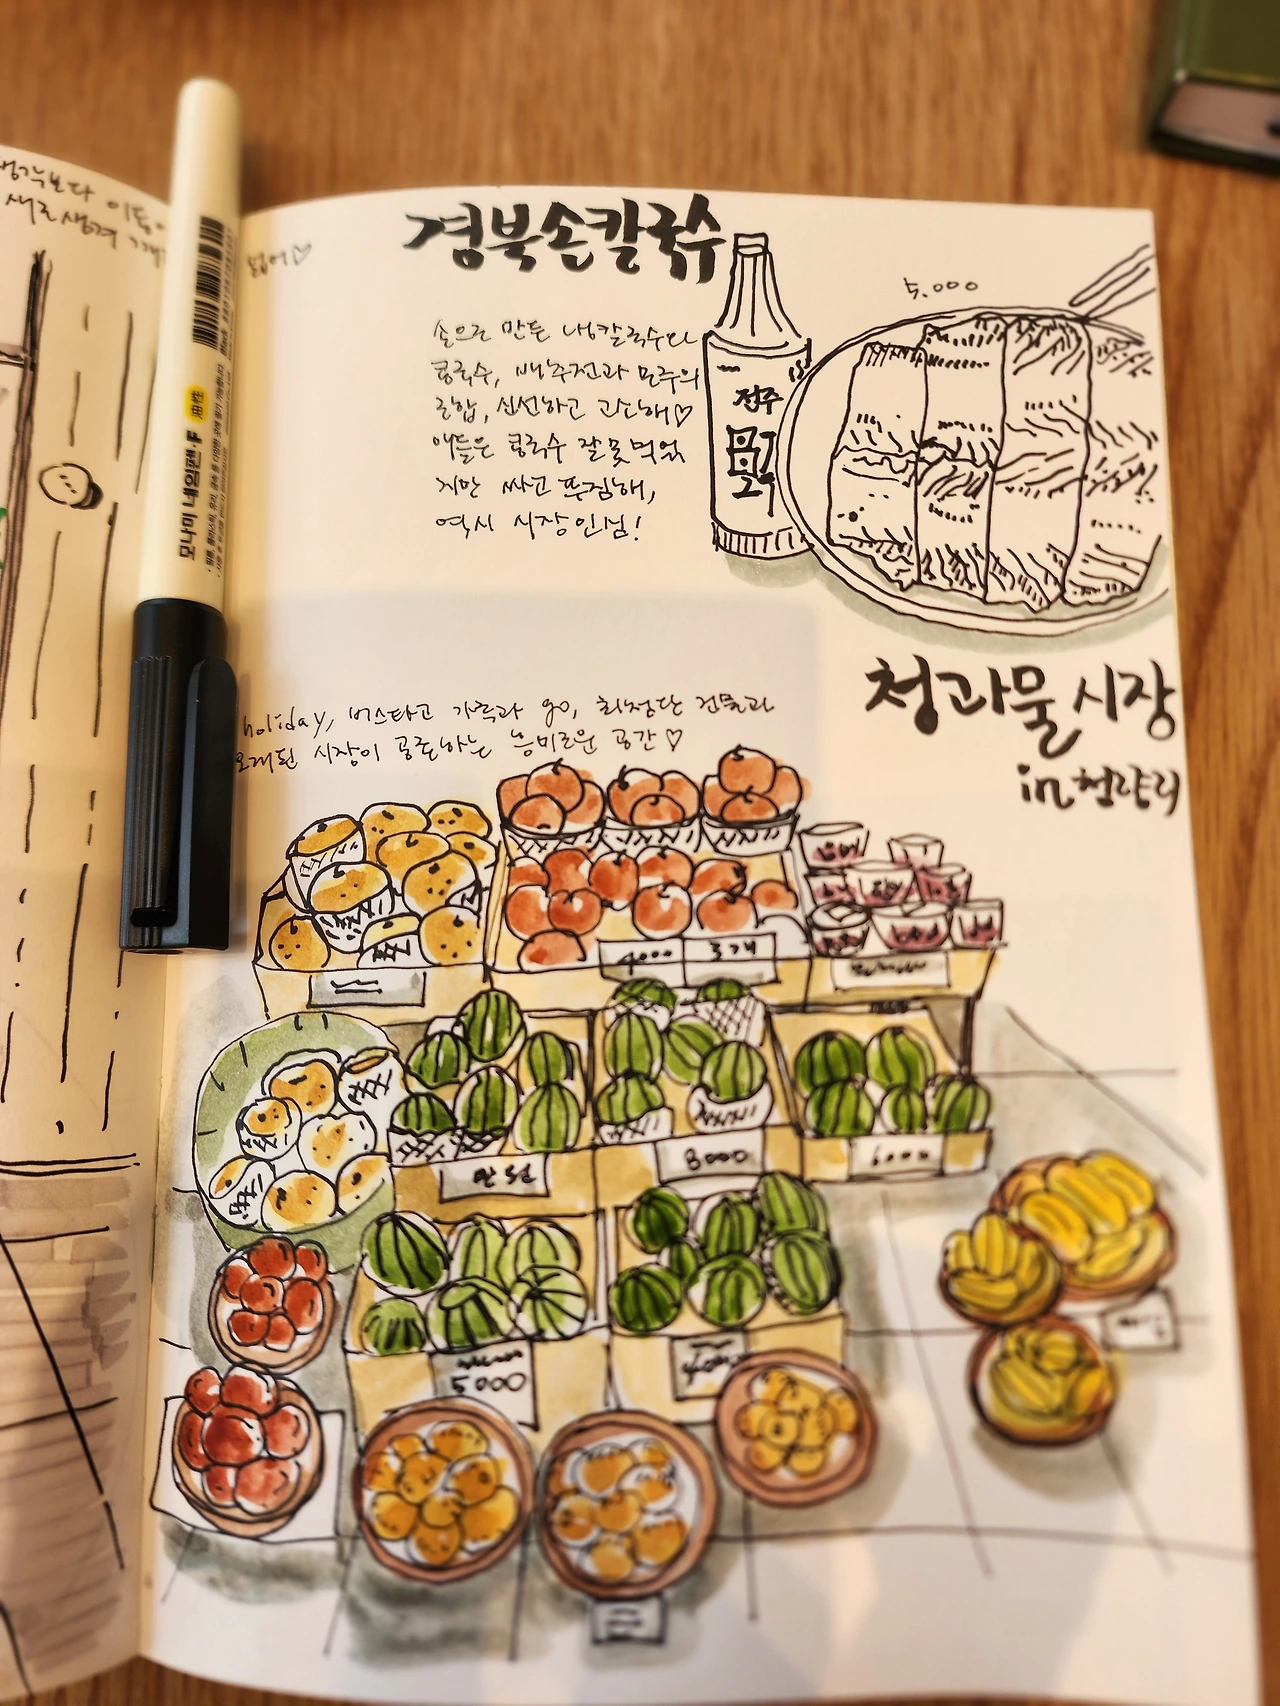 생각보다 이듬
새로 생겨
넓어♡
경북손칼국수
5,000
손으로 만든 냉칼국수와
콩국수, 배추전과 맥주의
조합, 신선하고 근사해♡
애들은 콩국수 잘 못 먹었
지만 싸고 푸짐해,
역시 시장인심!
전주
청과물 시장
in 청량리
holiday, 버스타고 가족과 go, 최첨단 건물과
오래된 시장이 공존하는 흥미로운 공간♡
4000 3개
만원
8000
6000
5000
모나미 네임펜 F 油性